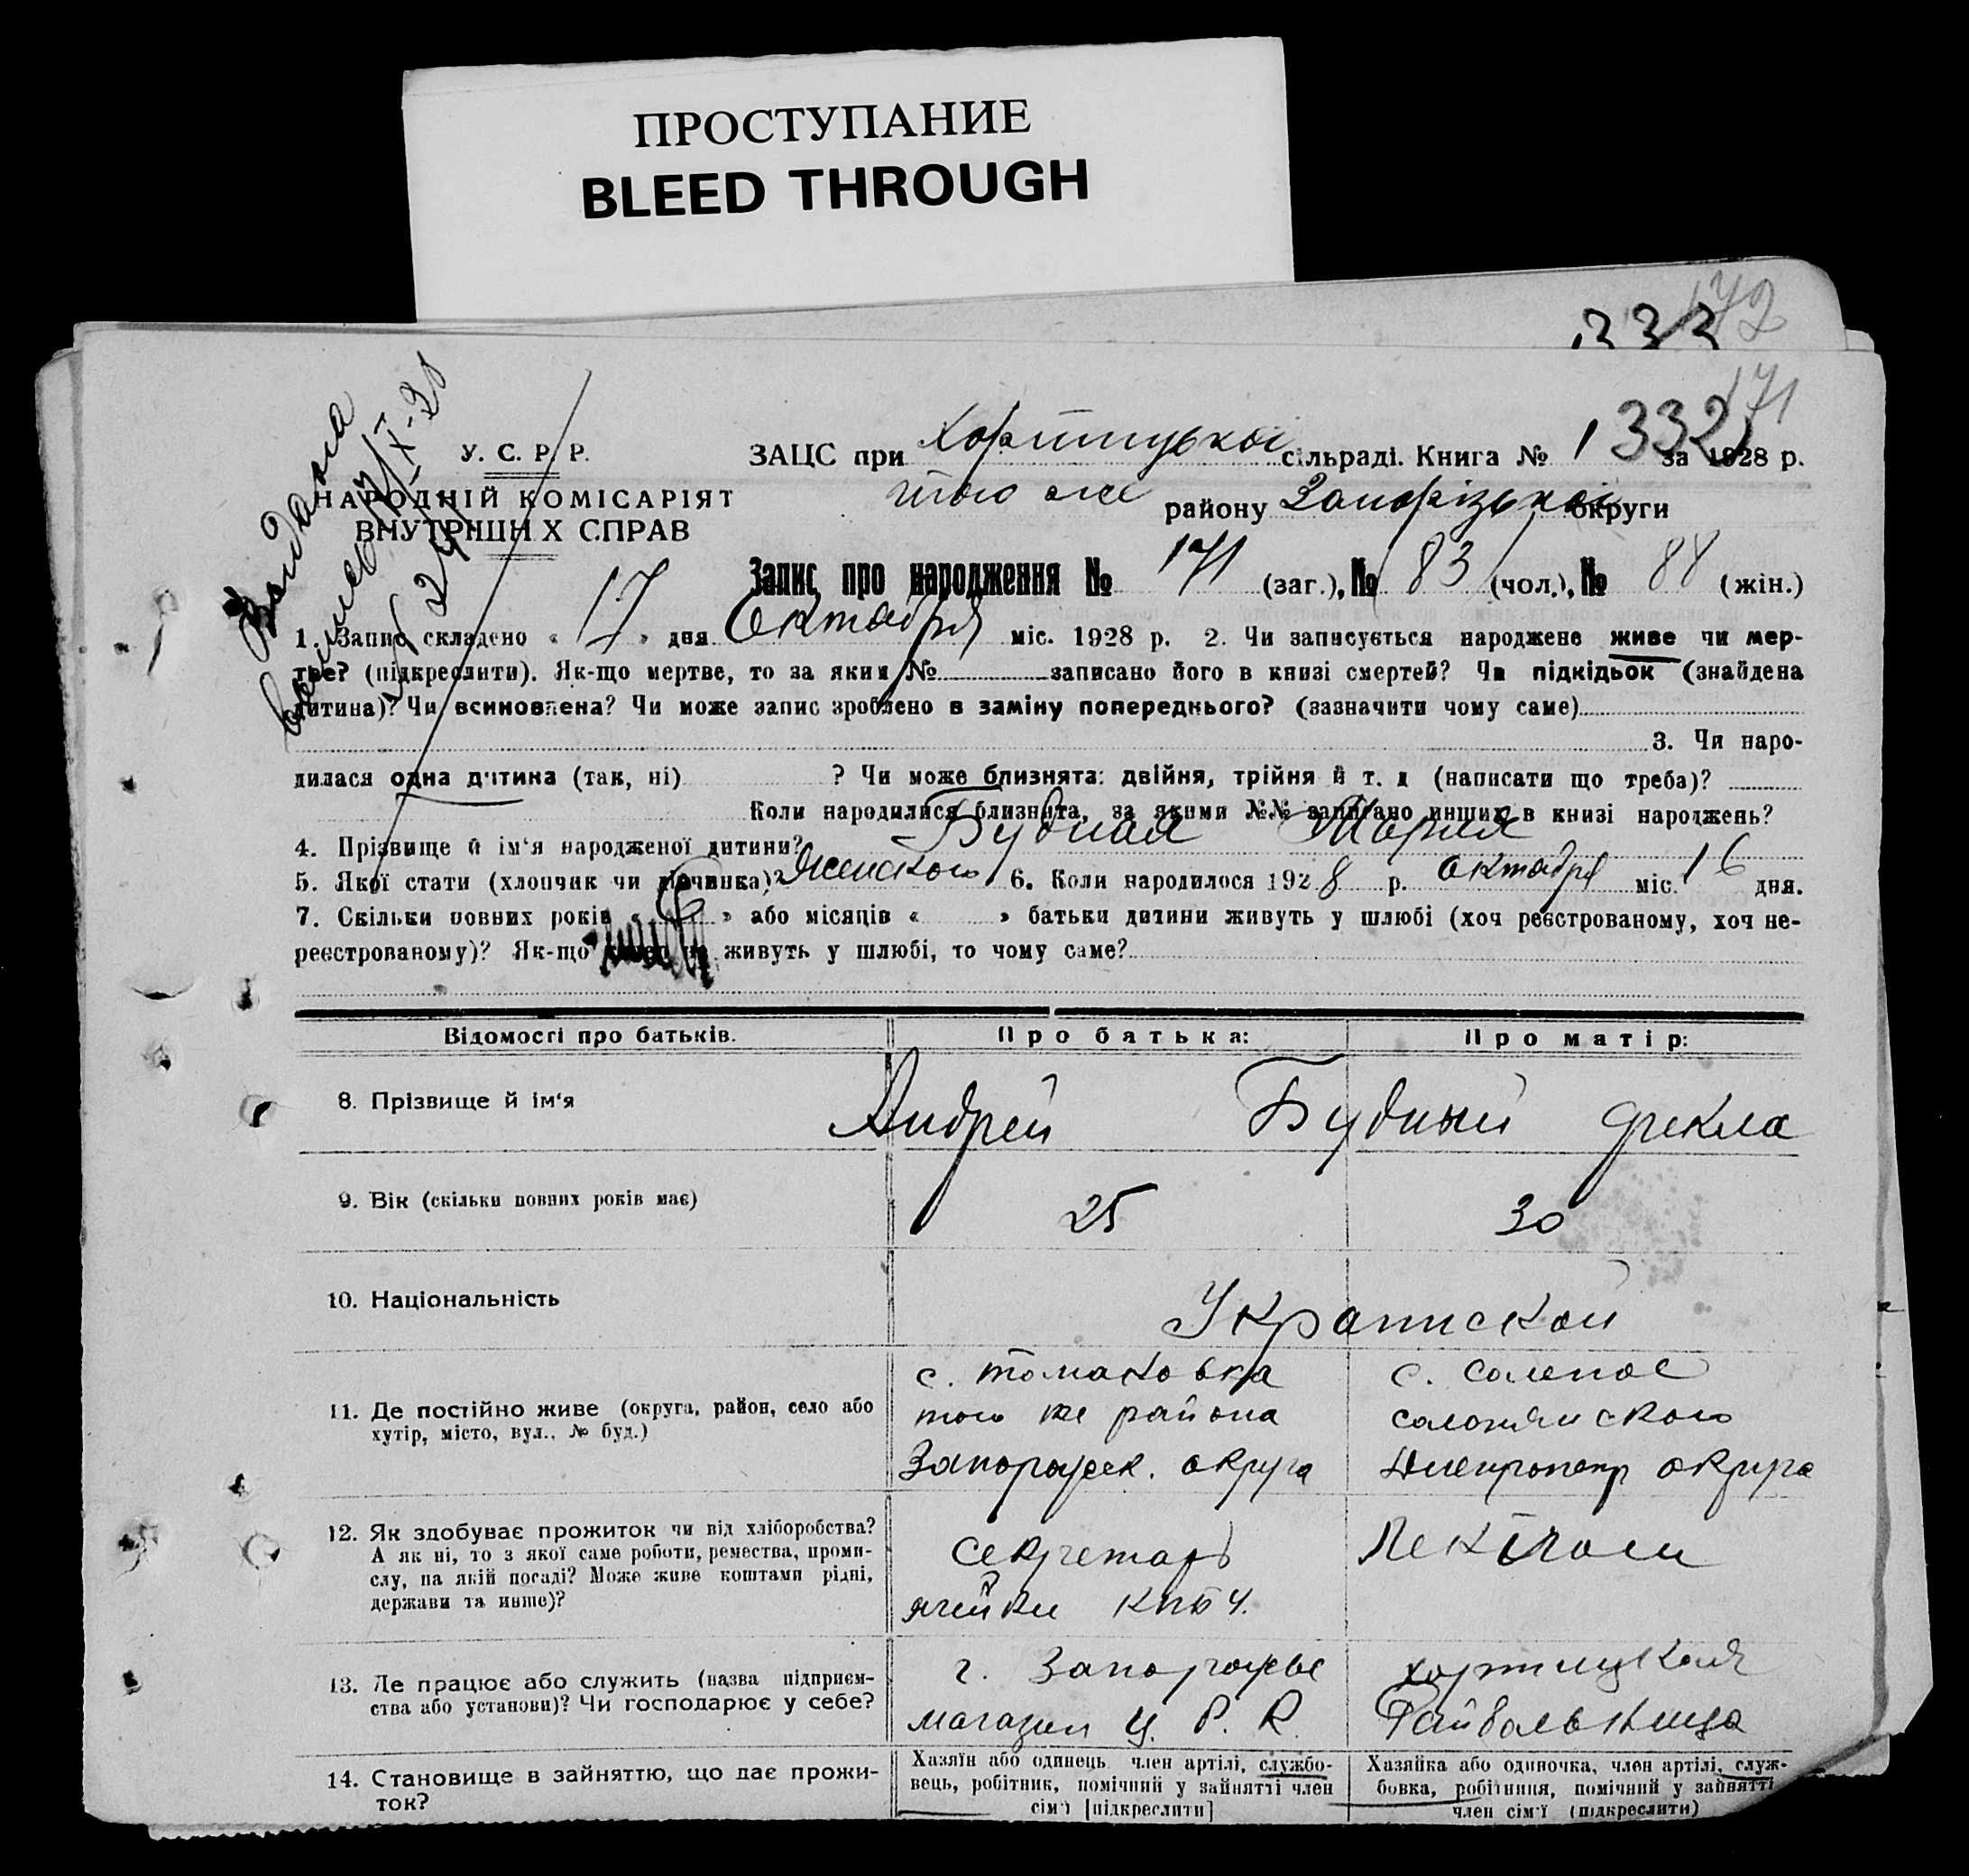 ПРОСТУПАНИЕ
BLEED THROUGH
172
332
171
332
Видана
виписка 17/X-28
№ 24
У. С. Р. Р.
НАРОДНІЙ КОМІСАРІЯТ
ВНУТРІШН Х СПРАВ
ЗАЦС при Хортицькой сільраді. Книга № 1 за 1928 р.
того же району Запорізькой округи
Запис про народження № 171 (заг.), № 83 (чол.), № 88 (жін.)
1. Запис складено « 17 » дня Октября міс. 1928 р. 2. Чи записується народжене живе чи мер-
тве? (підкреслити). Як-що мертве, то за яким № записано його в книзі смертей? Чи підкідьок (знайдена
дитина)? Чи всиновлена? Чи може запис зроблено в заміну попереднього? (зазначити чому саме)
3. Чи наро-
дилася одна дитина (так, ні) ? Чи може близнята: двійня, трійня й т. д (написати що треба)?
Коли народилися близнята, за якими №№ записано инших в книзі народжень?
4. Прізвище й ім'я народженої дитини? Будная Мария
5. Якої стати (хлопчик чи дівчинка)? Женского 6. Коли народилося 1928 р. октября міс. 16 дня.
7. Скільки повних років « 6 » або місяців « » батьки дитини живуть у шлюбі (хоч реєстрованому, хоч не-
реєстрованому)? Як-що живуть у шлюбі, то чому саме?
Відомості про батьків. Про батька: Про матір:
8. Прізвище й ім'я Андрей Будный Фекла
9. Вік (скільки повних років має) 25 30
10. Національність Украинской
11. Де постійно живе (округа, район, село або
хутір, місто, вул., № буд.)
с. Томаковка
того же района
Запорожск. округа
с. Соленое
Солонянского
Днепропетр округа
12. Як здобуває прожиток чи від хліборобства?
А як ні, то з якої саме роботи, ремества, проми-
слу, на якій посаді? Може живе коштами рідні,
держави та инше)?
Секретарь
ячейки КПбУ.
Лекпом
13. Де працює або служить (назва підприєм-
ства або установи)? Чи господарює у себе?
г. Запорожье
магазин Ц. Р. К.
Хортицкая
Райбольница
14. Становище в зайняттю, що дає прожи-
ток?
Хазяїн або одинець член артілі, службо-
вець, робітник, помічний у зайнятті член
сім'ї [підкреслити]
Хазяйка або одиночка, член артілі, служ-
бовка, робітниця, помічний у зайнятті
член сім'ї (підкреслити)